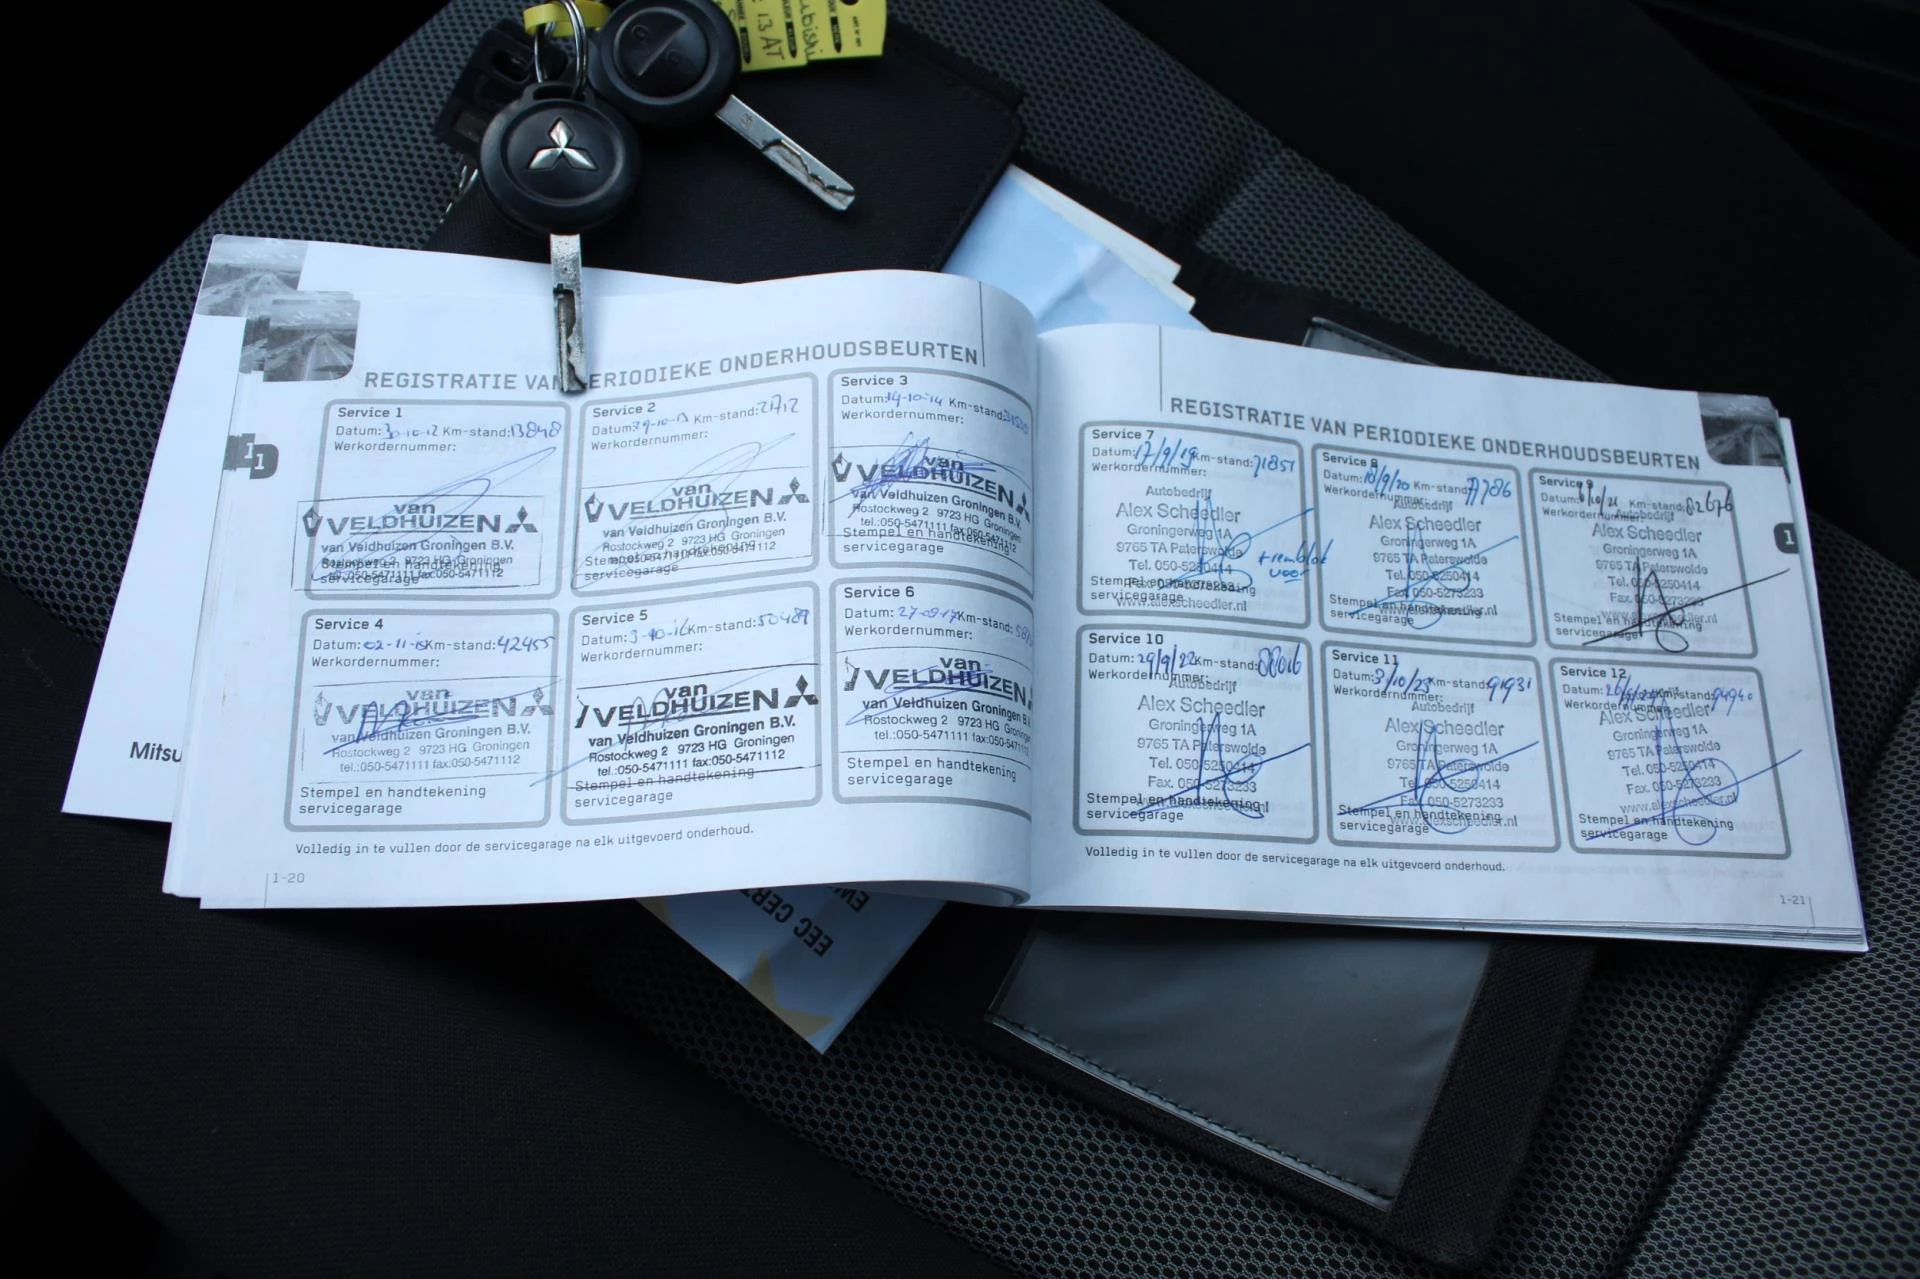 ubishi
13 AT
REGISTRATIE VAN PERIODIEKE ONDERHOUDSBEURTEN
Service 1
Datum: 30-10-12 Km-stand: 13848
Werkordernummer:
van
VELDHUIZEN
van Veldhuizen Groningen B.V.
Rostockweg 2 9723 HG Groningen
tel.:050-5471111 fax:050-5471112
Stempel en handtekening
servicegarage
Service 2
Datum: 29-10-13 Km-stand: 21712
Werkordernummer:
van
VELDHUIZEN
van Veldhuizen Groningen B.V.
Rostockweg 2 9723 HG Groningen
tel.:050-5471111 fax:050-5471112
Stempel en handtekening
servicegarage
Service 3
Datum: 14-10-14 Km-stand:
Werkordernummer:
van
VELDHUIZEN
van Veldhuizen Groningen B.V.
Rostockweg 2 9723 HG Groningen
tel.:050-5471111 fax:050-5471112
Stempel en handtekening
servicegarage
Service 4
Datum: 02-11-15 Km-stand: 42455
Werkordernummer:
van
VELDHUIZEN
van Veldhuizen Groningen B.V.
Rostockweg 2 9723 HG Groningen
tel.:050-5471111 fax:050-5471112
Stempel en handtekening
servicegarage
Service 5
Datum: 3-10-16 Km-stand: 50489
Werkordernummer:
van
VELDHUIZEN
van Veldhuizen Groningen B.V.
Rostockweg 2 9723 HG Groningen
tel.:050-5471111 fax:050-5471112
Stempel en handtekening
servicegarage
Service 6
Datum: 27-09-17 Km-stand:
Werkordernummer:
van
VELDHUIZEN
van Veldhuizen Groningen B.V.
Rostockweg 2 9723 HG Groningen
tel.:050-5471111 fax:050-5471112
Stempel en handtekening
servicegarage
Volledig in te vullen door de servicegarage na elk uitgevoerd onderhoud.
1-20
1
Mitsu
REGISTRATIE VAN PERIODIEKE ONDERHOUDSBEURTEN
Service 7
Datum: 17/9/19 Km-stand: 71851
Werkordernummer:
Autobedrijf
Alex Scheedler
Groningerweg 1A
9765 TA Paterswolde
Tel. 050-5250414
Fax. 050-5273233
www.alexscheedler.nl
+ remblok
voor
Stempel en handtekening
servicegarage
Service 8
Datum: 18/9/20 Km-stand: 77786
Werkordernummer:
Autobedrijf
Alex Scheedler
Groningerweg 1A
9765 TA Paterswolde
Tel. 050-5250414
Fax. 050-5273233
www.alexscheedler.nl
Stempel en handtekening
servicegarage
Service 9
Datum: /10/21 Km-stand: 82676
Werkordernummer:
Autobedrijf
Alex Scheedler
Groningerweg 1A
9765 TA Paterswolde
Tel. 050-5250414
Fax. 050-5273233
www.alexscheedler.nl
Stempel en handtekening
servicegarage
Service 10
Datum: 29/9/22 Km-stand: 88016
Werkordernummer:
Autobedrijf
Alex Scheedler
Groningerweg 1A
9765 TA Paterswolde
Tel. 050-5250414
Fax. 050-5273233
www.alexscheedler.nl
Stempel en handtekening
servicegarage
Service 11
Datum: 31/10/23 Km-stand: 91931
Werkordernummer:
Autobedrijf
Alex Scheedler
Groningerweg 1A
9765 TA Paterswolde
Tel. 050-5250414
Fax. 050-5273233
www.alexscheedler.nl
Stempel en handtekening
servicegarage
Service 12
Datum: Km-stand: 94940
Werkordernummer:
Alex Scheedler
Groningerweg 1A
9765 TA Paterswolde
Tel. 050-5250414
Fax. 050-5273233
www.alexscheedler.nl
Stempel en handtekening
servicegarage
Volledig in te vullen door de servicegarage na elk uitgevoerd onderhoud.
1-21
1
EEC CERT